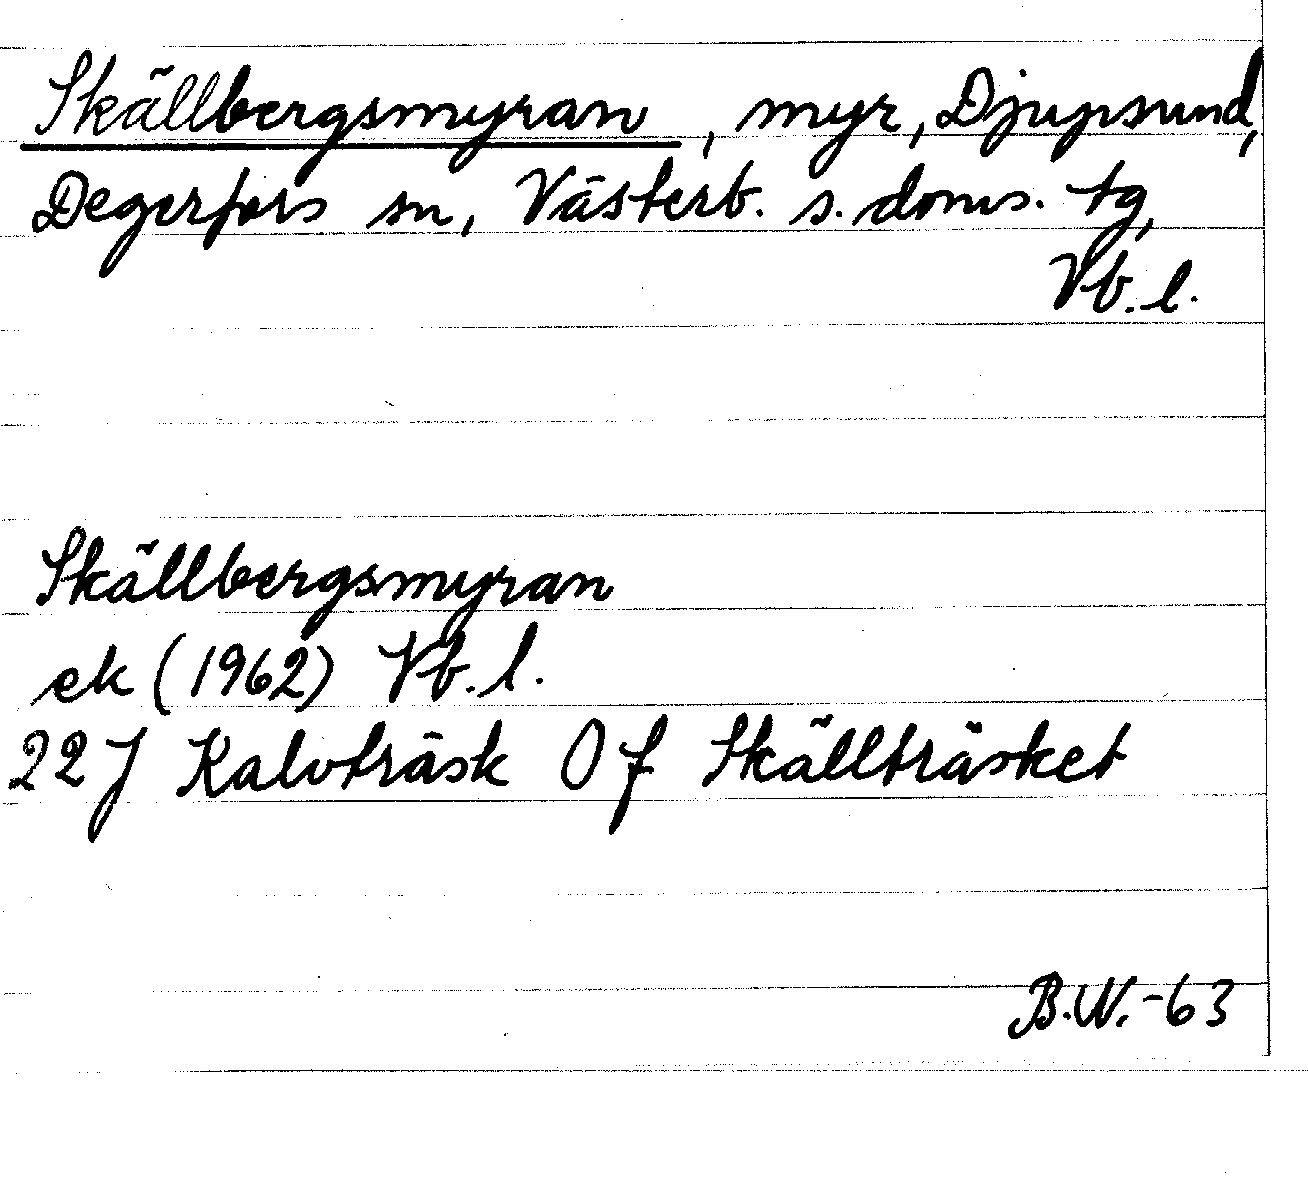 Skällbergsmyran, myr, Djupsund,
Degerfors sn, Västerb. s. doms. tg,
Vb. l.
Skällbergsmyran
ek (1962) Vb. l.
22J Kalvträsk 0 f Skällträsket
B.W.-63